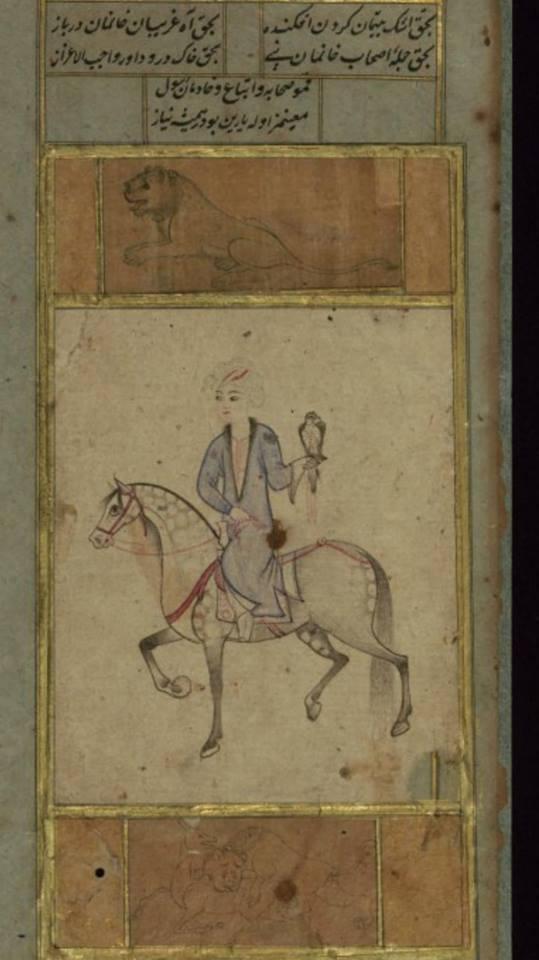 بحق اشک یتیمان کردن افکنده بحق آه غریبان خانمان در باز
بحق جملهٔ اصحاب خانمان نبی بحق خاک در و داور واجب الاعزاز
صحابه و اتباع و خادمان رسول
او له یارین بو در همیشه نیاز